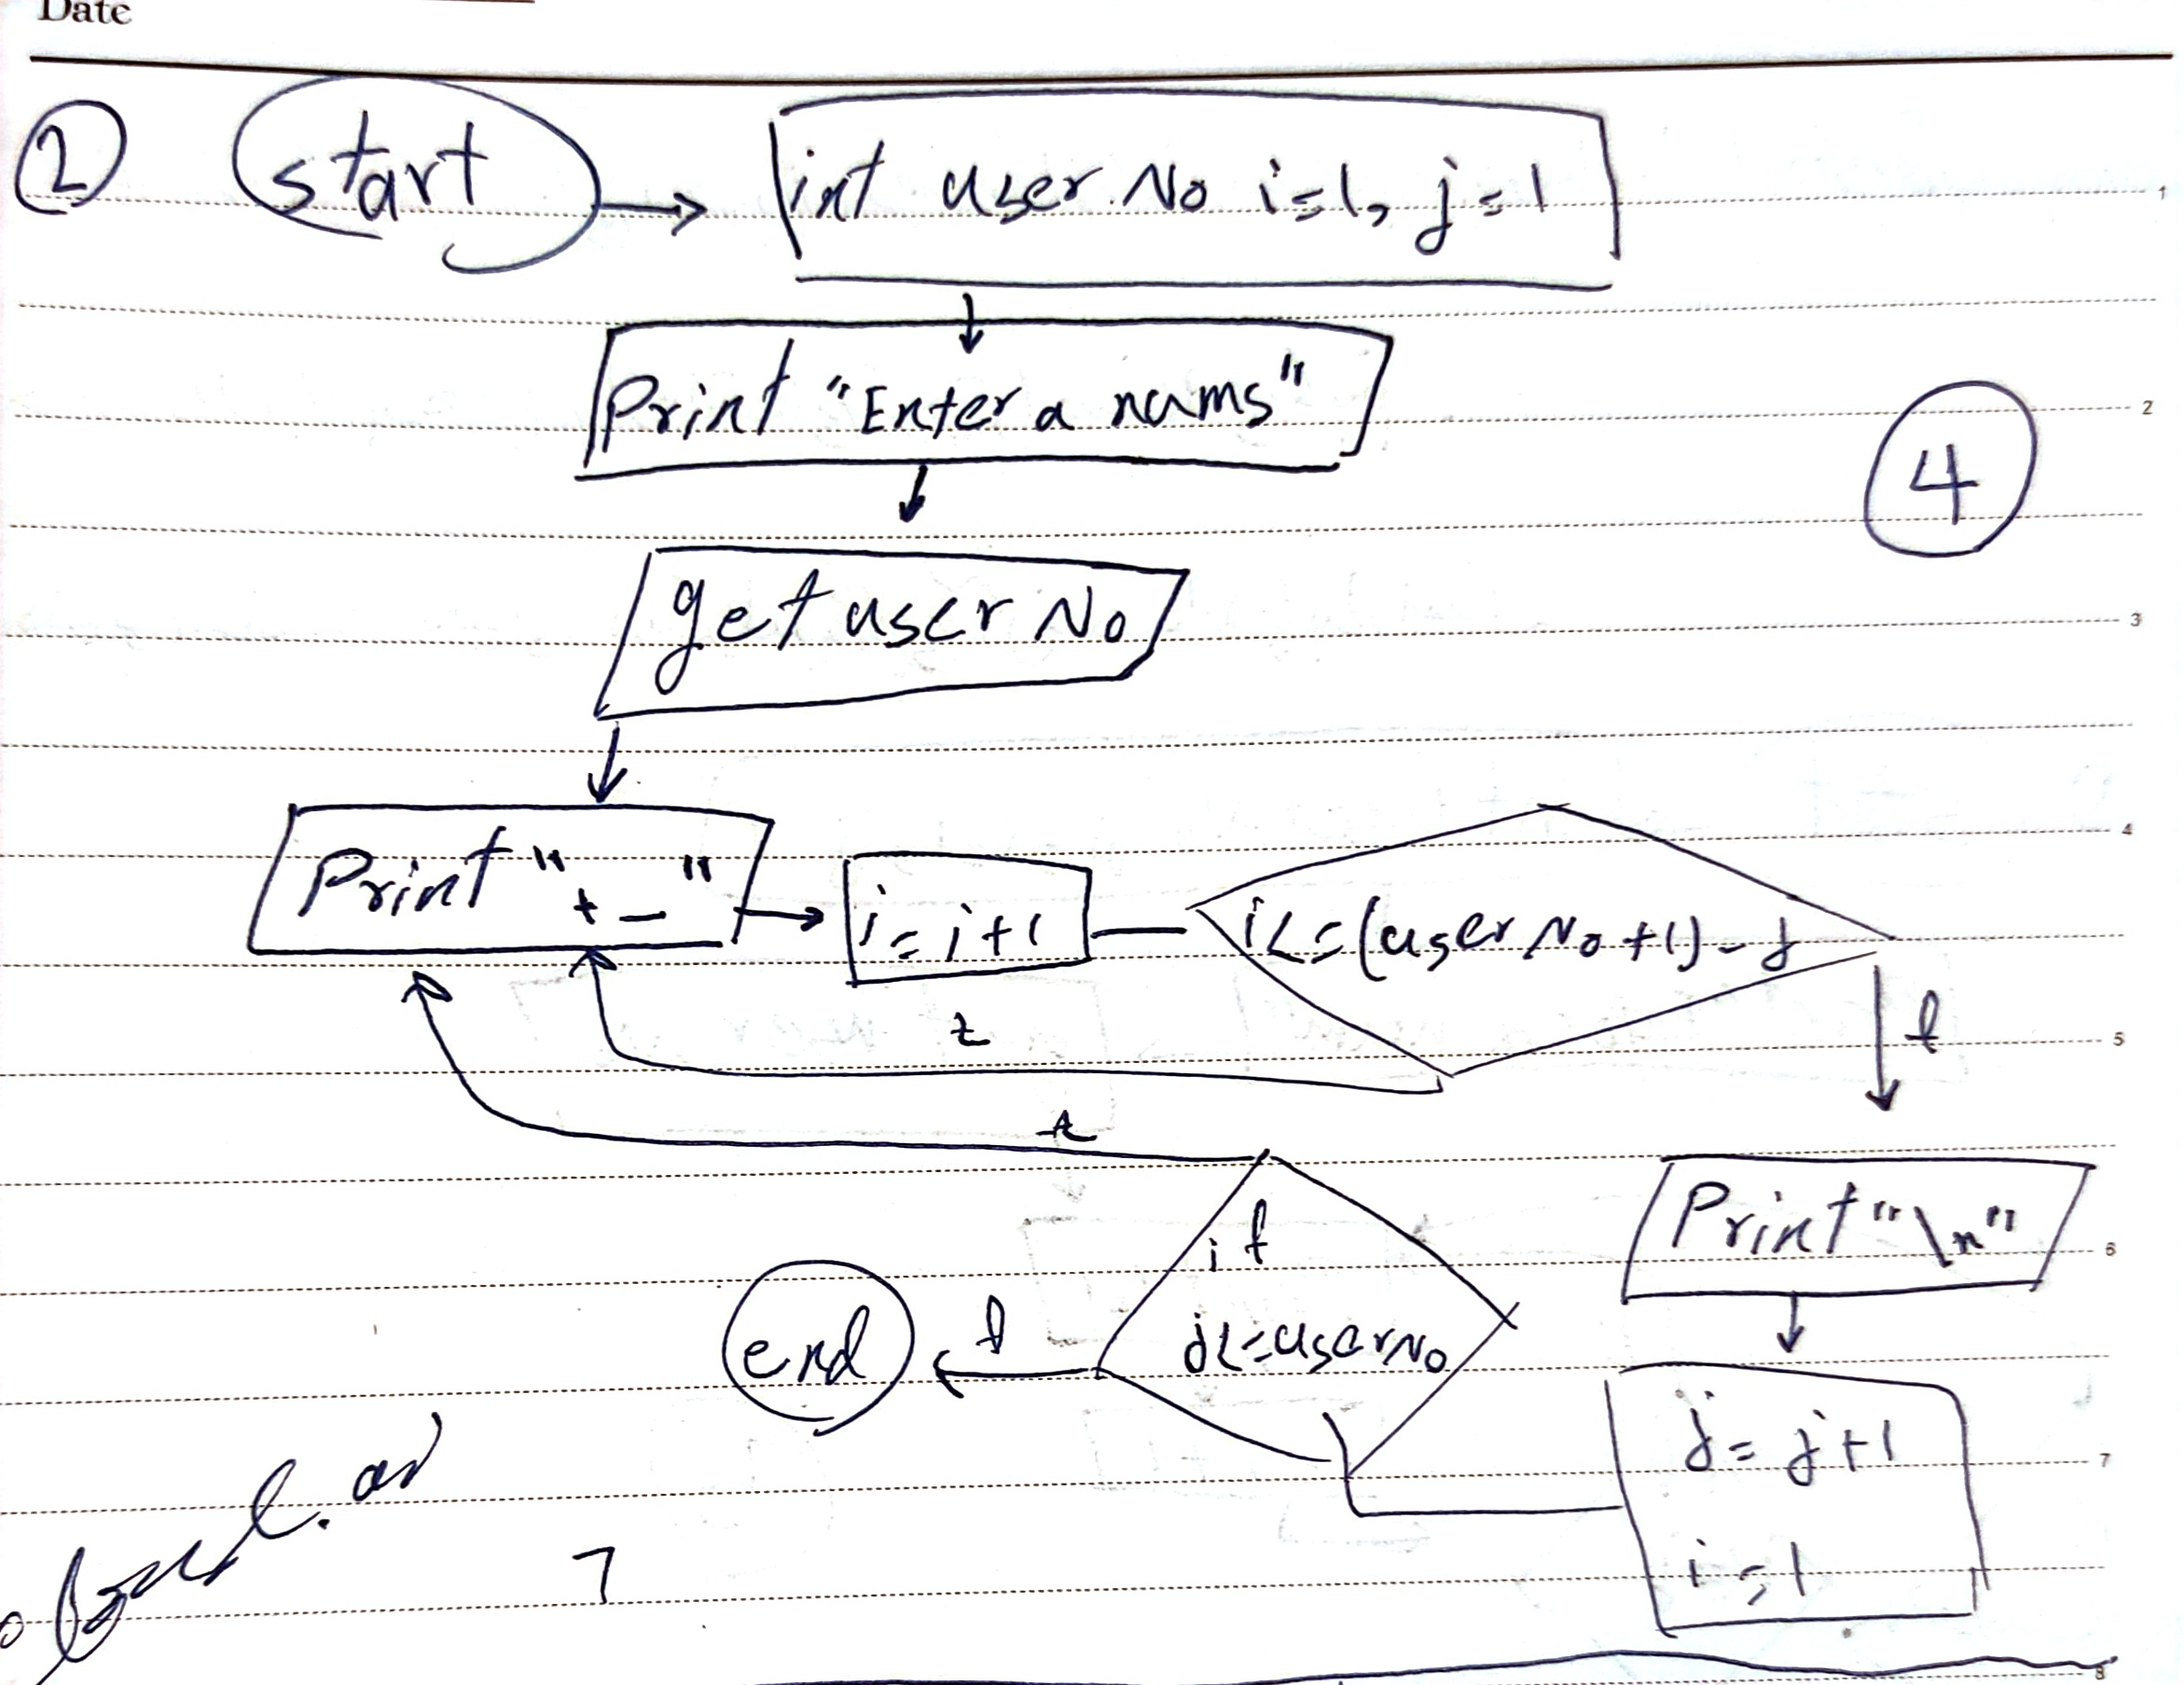 Date
2 start int user No i=1, j=1
1
Print "Enter a nums"
2
4
get user No
3
Print "+_" i=i+1 i<=(user No+1)-j
4
t f
5
t
Print "\n"
6
if
j<=userNo
end f
j=j+1
7
i=1
7
8